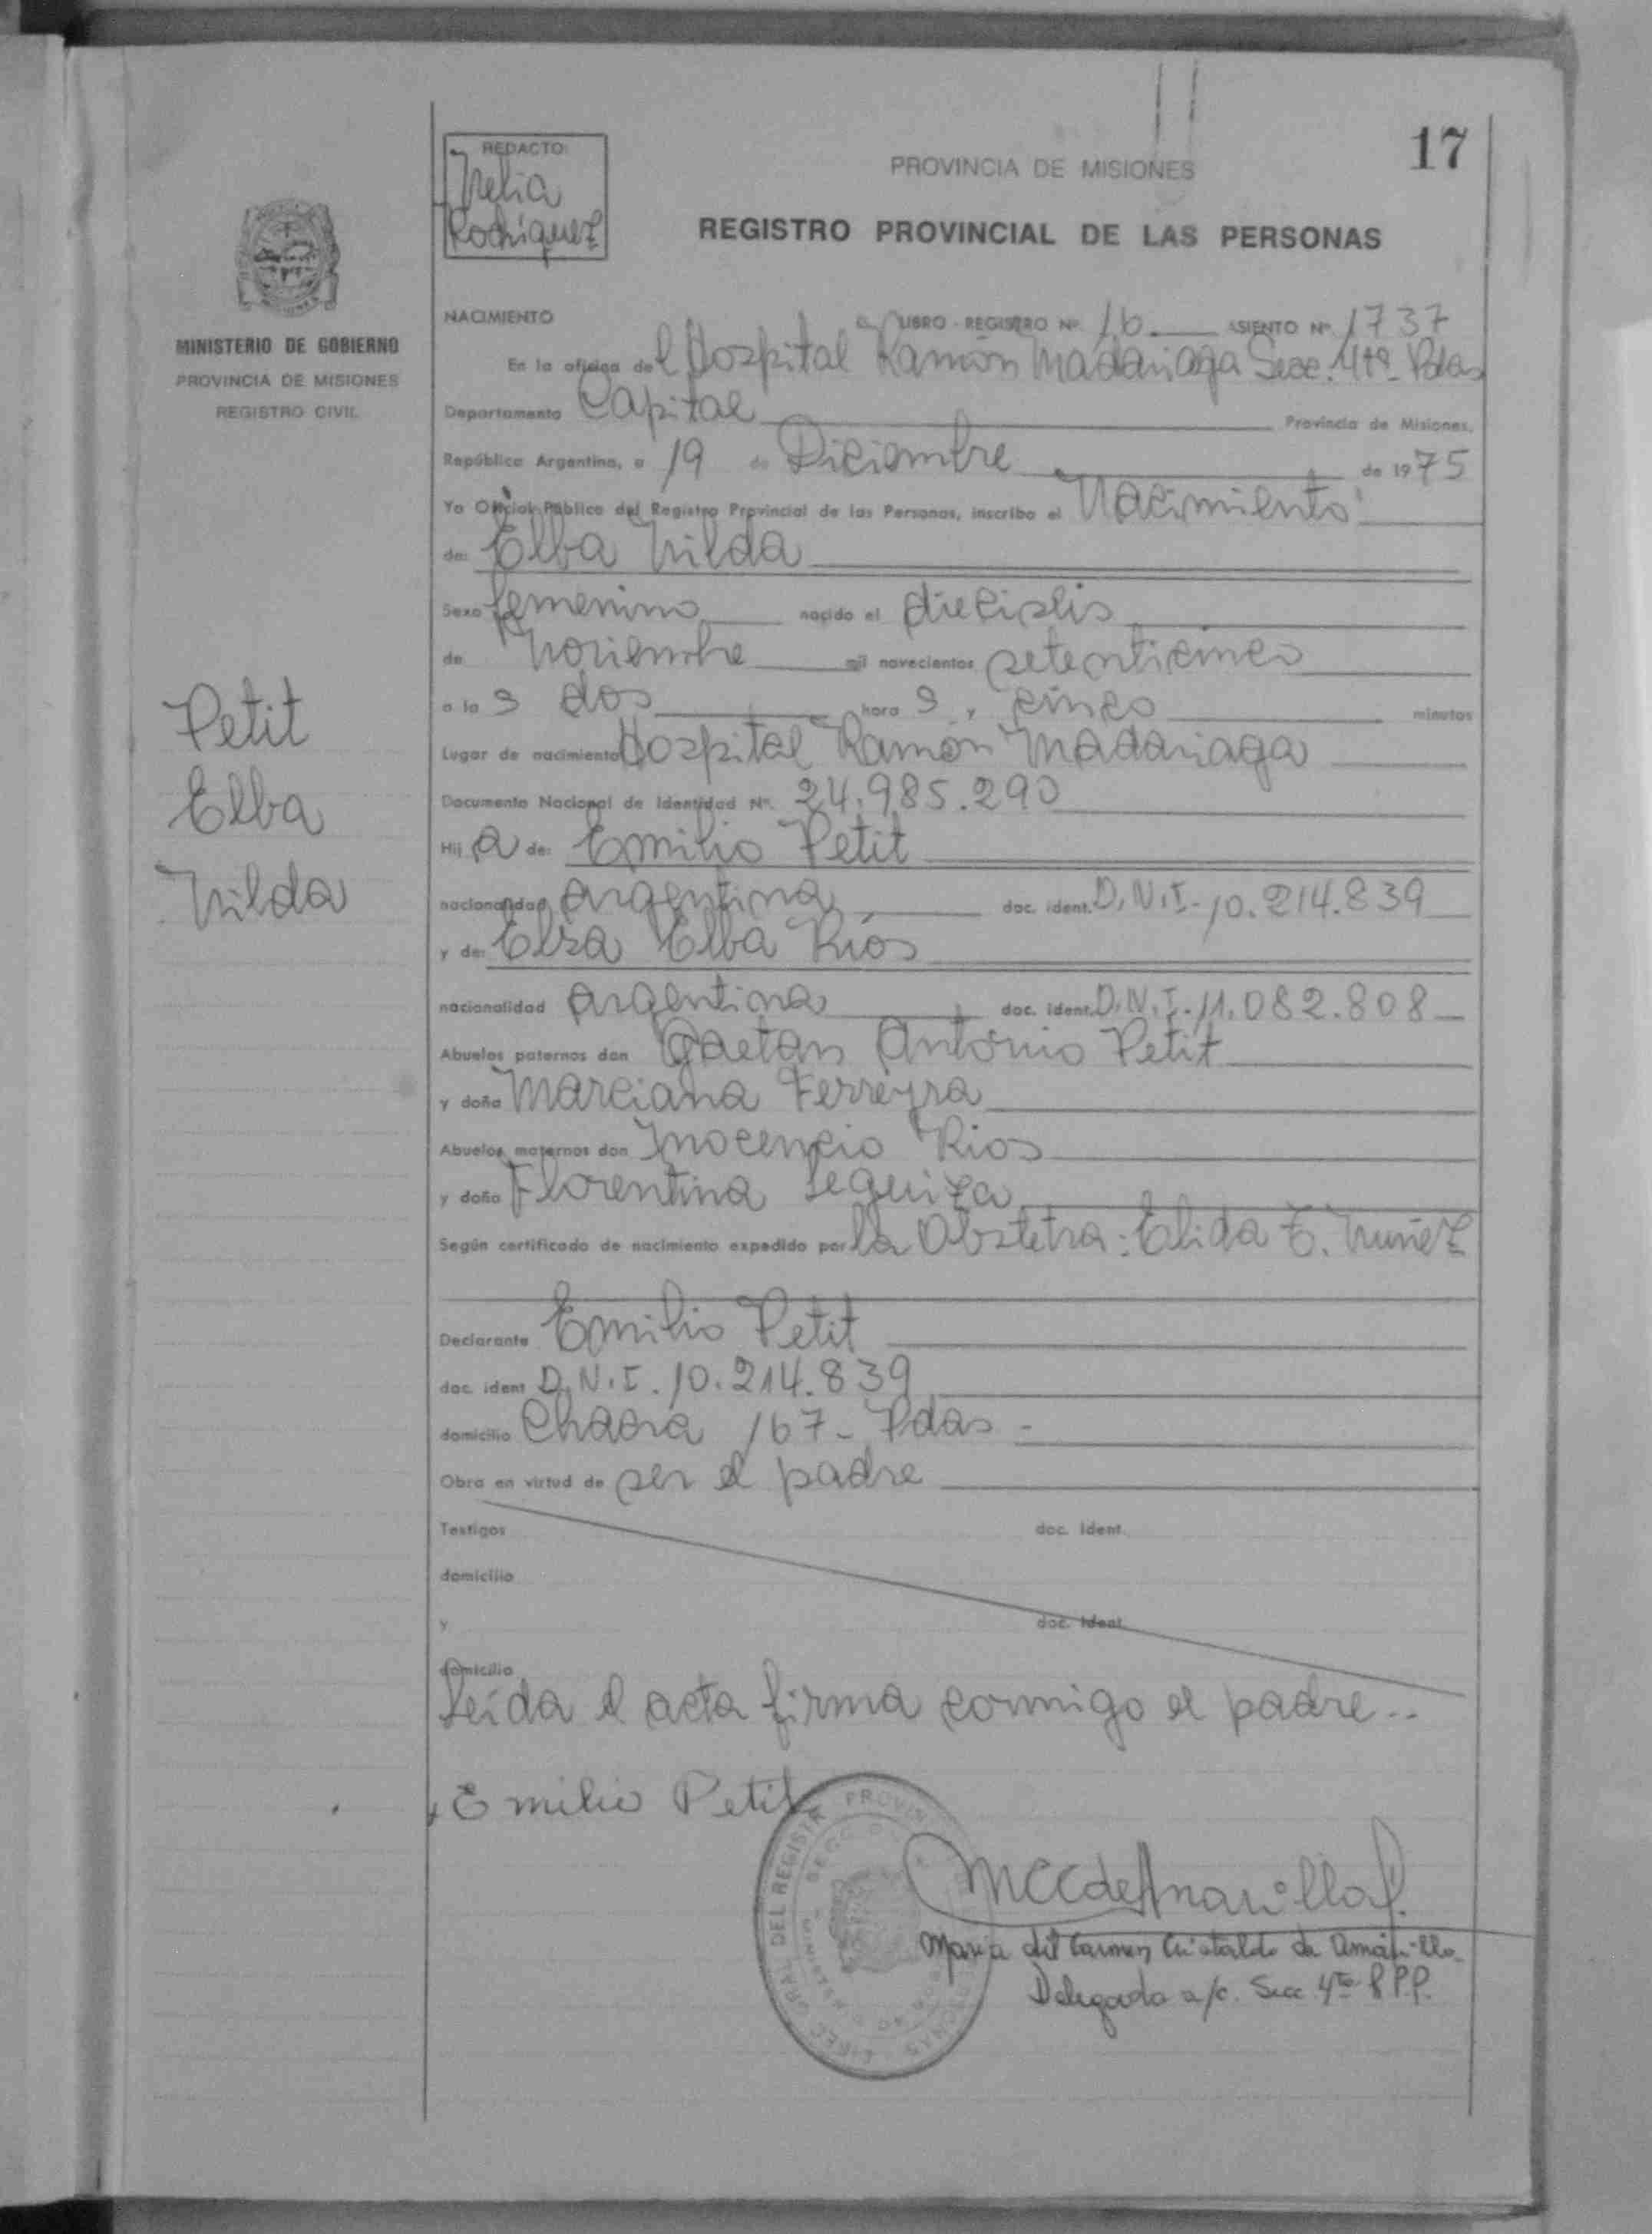 17
REDACTO:
Nelia
Rodriguez
PROVINCIA DE MISIONES
REGISTRO PROVINCIAL DE LAS PERSONAS
MINISTERIO DE GOBIERNO
PROVINCIA DE MISIONES
REGISTRO CIVIL
NACIMIENTO LIBRO - REGISTRO Nº 16 ASIENTO Nº 1737
En la oficina del Hospital Ramón Madariaga Secc. 4ta. Pdas
Departamento Capital Provincia de Misiones,
República Argentina, a 19 de Diciembre de 1975
Yo Oficial Público del Registro Provincial de las Personas, inscribo el Nacimiento
de: Elba Nilda
Sexo femenino nacido el dieciseis
de Noviembre mil novecientos setenticinco
a las dos horas, cinco minutos
Lugar de nacimiento Hospital Ramón Madariaga
Documento Nacional de Identidad Nº. 24.985.290
Hija de: Emilio Petit
nacionalidad argentina doc. ident. D.N.I. 10.214.839
y de: Elsa Elba Ríos
nacionalidad argentina doc. ident. D.N.I. 11.082.808
Abuelos paternos don Gaetan Antonio Petit
y doña Marciana Ferreyra
Abuelos maternos don Inocencio Rios
y doña Florentina Sequiza
Según certificado de nacimiento expedido por la Obstetra: Elida E. Nuñez
Declarante Emilio Petit
doc. ident D.N.I. 10.214.839
domicilio Chacra 167 - Pdas -
Obra en virtud de ser el padre
Testigos doc. ident.
domicilio
y doc. ident.
domicilio
Leída el acta firma conmigo el padre..
Petit
Elba
Nilda
Emilio Petit
DIREC. GRAL. DEL REGISTR PROVIN
MCCdeAmarilla
Maria del Carmen Cristaldo de Amarilla
Delegada a/c. Secc 4ta R.P.P.